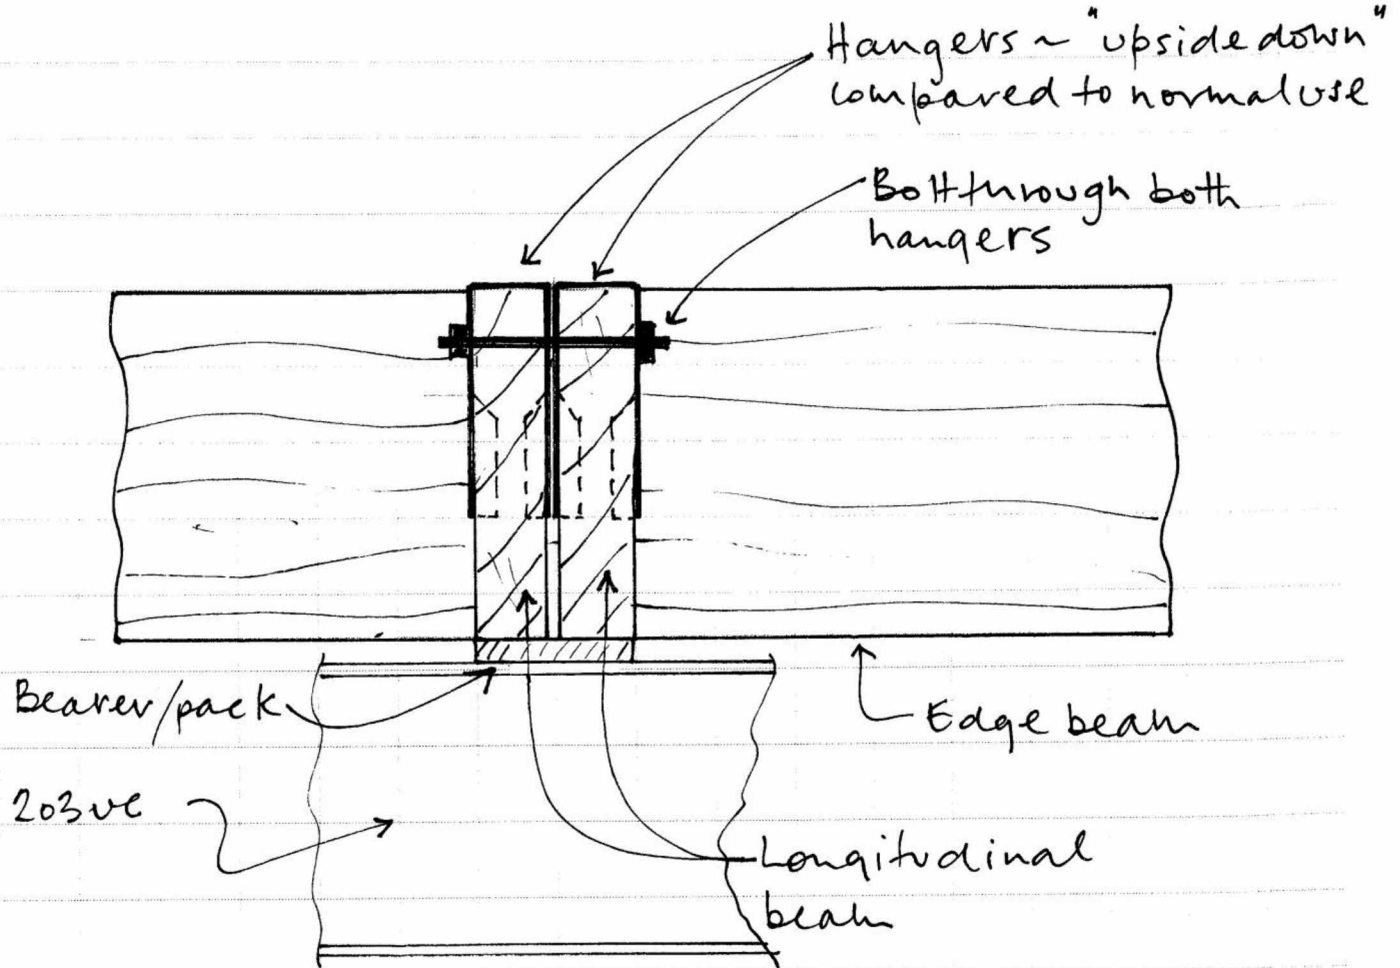 Hangers ~ "upside down"
compared to normal use
Bolt through both
hangers
Bearer/pack
Edge beam
203uc
Longitudinal
beam